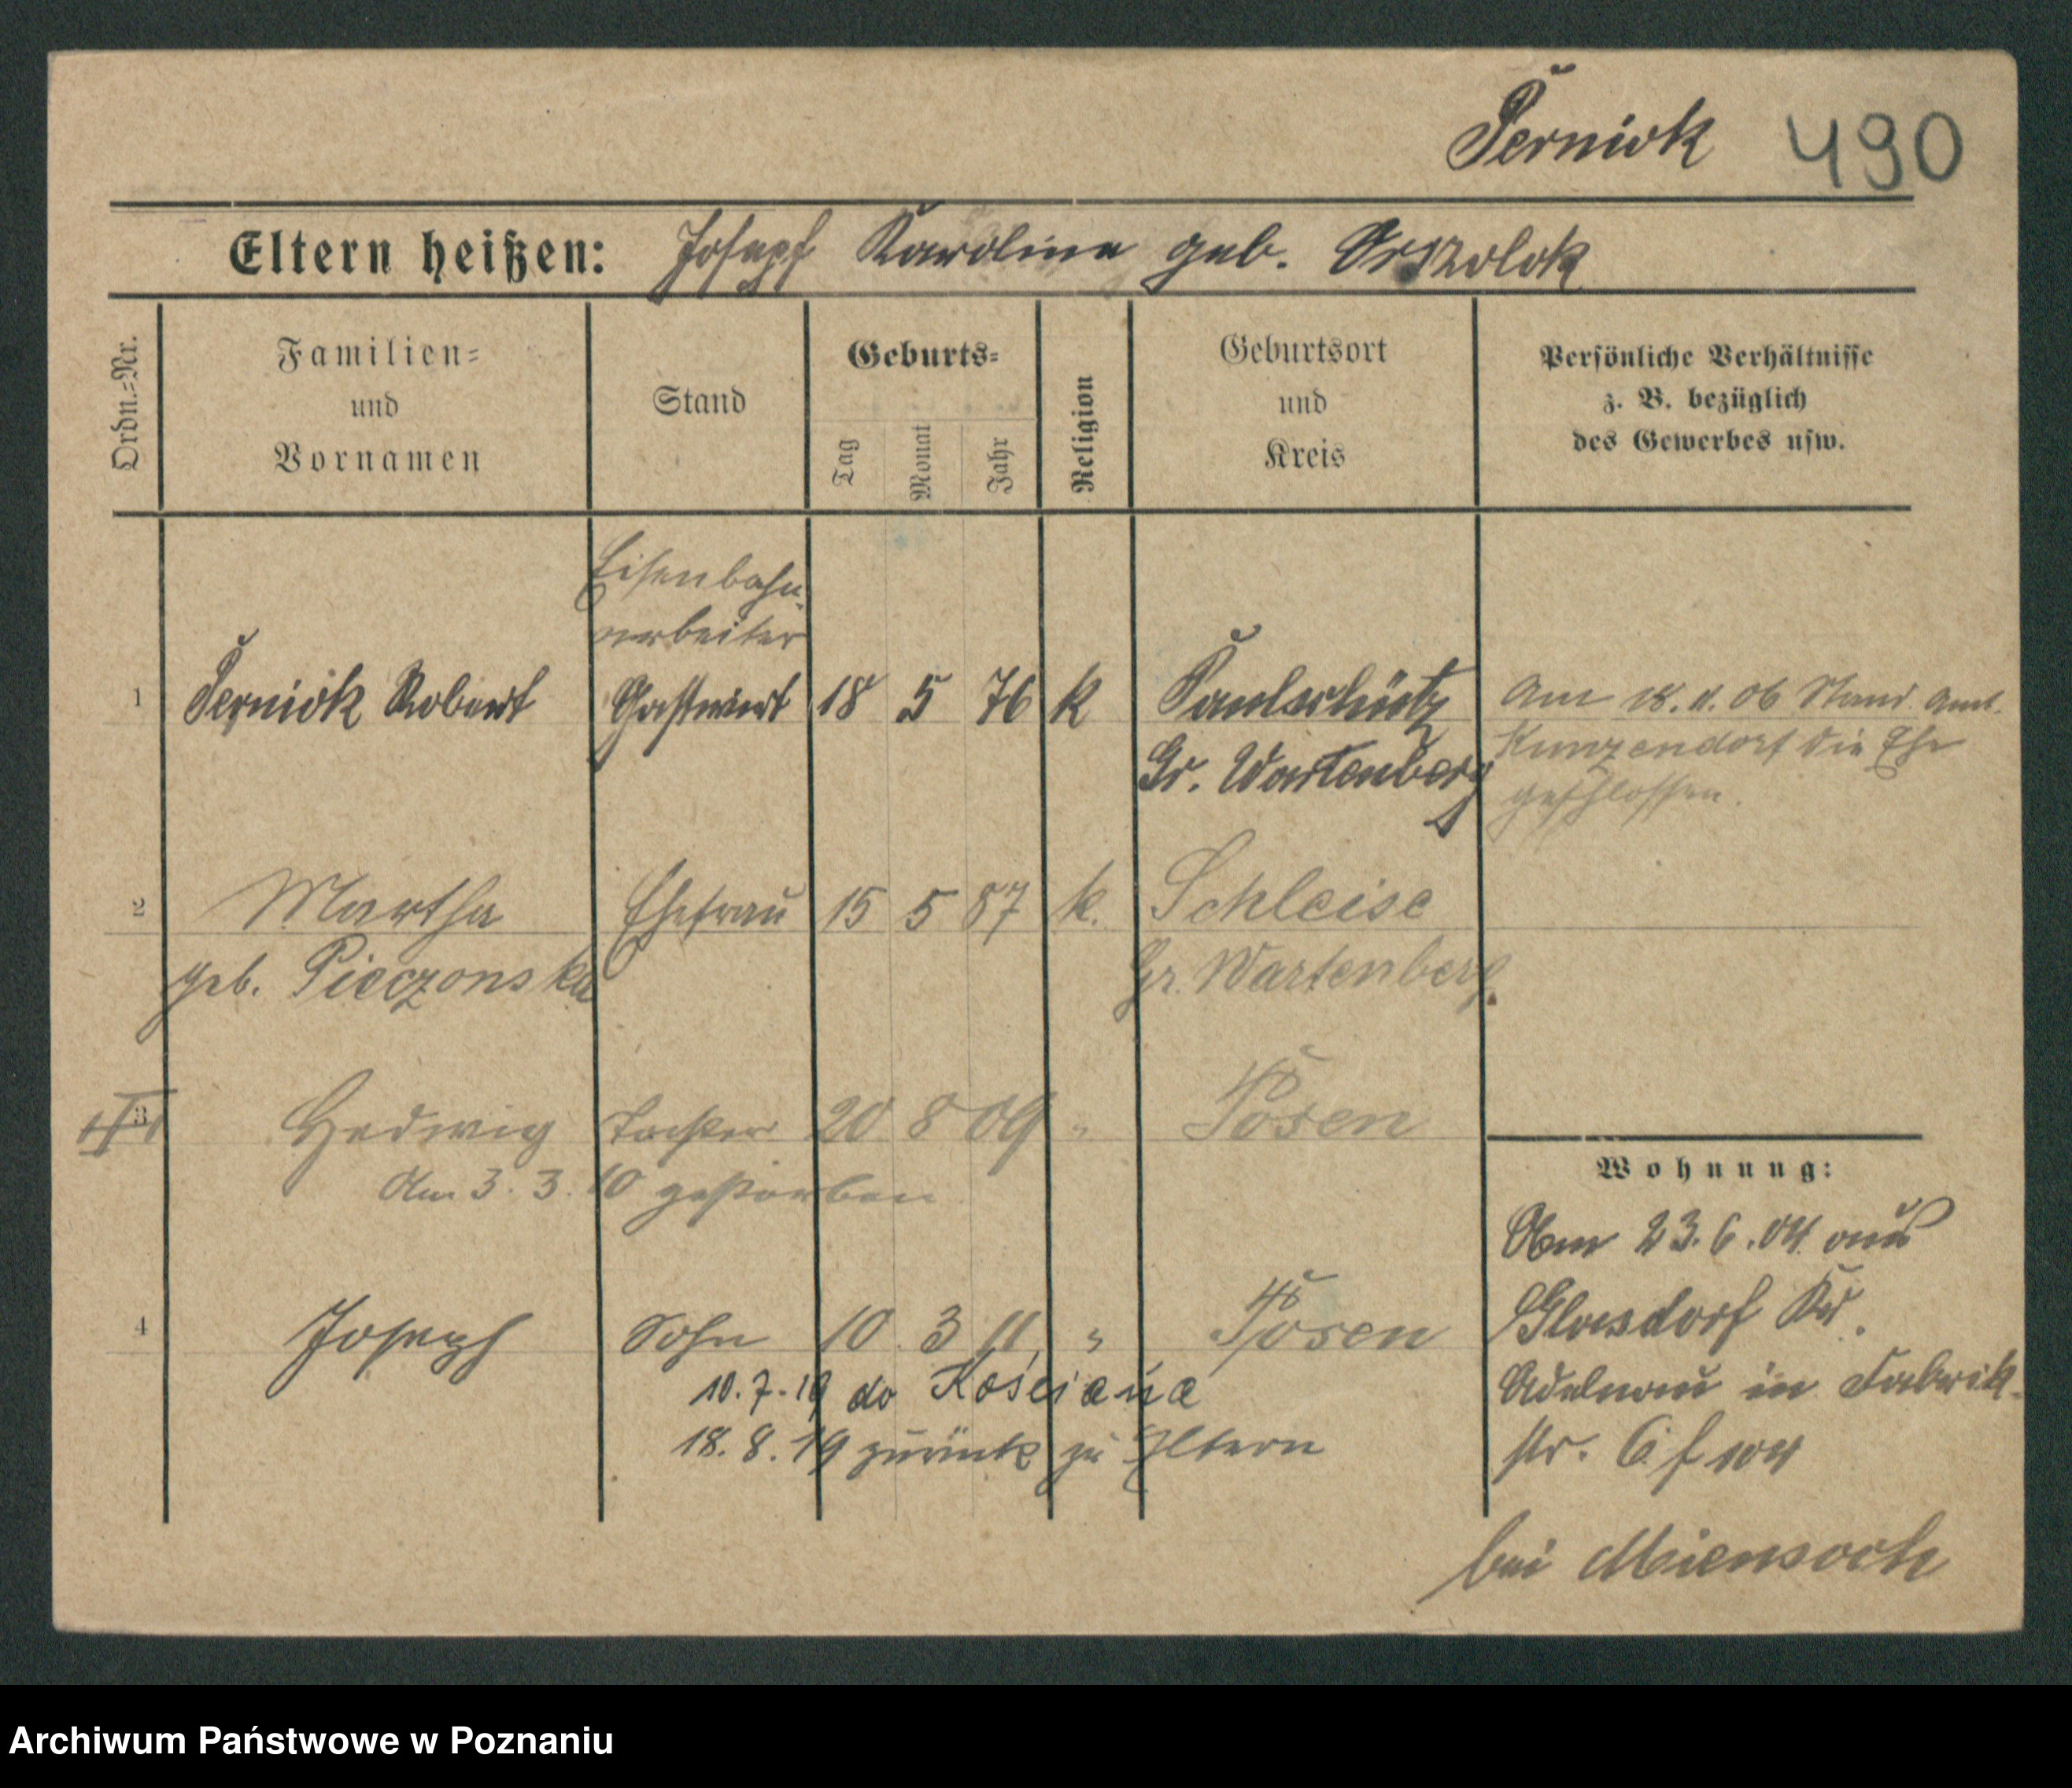 Perniok 490
Eltern heißen: Josepf Karoline geb. Orszolok
Ordn.=Nr.
Familien=
und
Vornamen
Stand
Geburts=
Tag
Monat
Jahr
Religion
Geburtsort
und
Kreis
Persönliche Verhältnisse
z. B. bezüglich
des Gewerbes usw.
Eisenbahn-
arbeiter
1 Perniok Robert Gastwirt 18 5 76 k Paulschütz
Gr. Wartenberg
Am 18. 11. 06 Stand. Amt.
Kunzendorf die Ehe
geschlossen.
2 Martha Ehefrau 15 5 87 k. Schleise
geb. Pieczonska Gr. Wartenberg.
3 Hedwig Tochter 20 8 09 " Posen
Am 3. 3. 10 gestorben
4 Joseph Sohn 10. 3 11 " Posen
10. 7. 19 do Kościana
18. 8. 19 zurück zu Eltern
Wohnung:
Am 23. 6. 04 aus
Kr.
Adelnau in Fabrik-
str. 6
bei
Archiwum Państwowe w Poznaniu